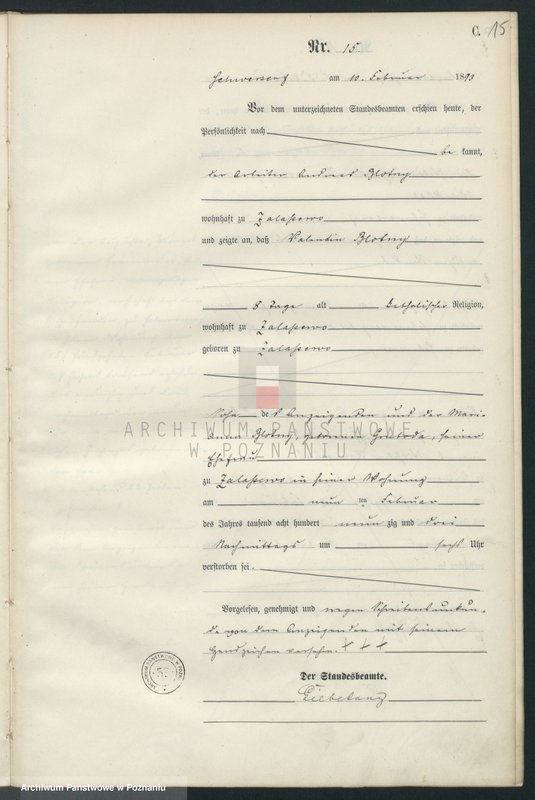 C. 15
Nr. 15.
Schwersenz am 10. Februar 1893
Vor dem unterzeichneten Standesbeamten erschien heute, der
Persönlichkeit nach
be kannt,
der Arbeiter Andreas Blotny
wohnhaft zu Zalasewo
und zeigte an, daß Valentin Blotny
8 Tage alt katholischer Religion,
wohnhaft zu Zalasewo
geboren zu Zalasewo
Sohn des Anzeigenden und der Mari-
ARCHIWUM PAŃSTWOWE
anna Blotny, geborenen, seiner
W POZNANIU
Ehefrau
zu Zalasewo in seiner Wohnung
am neun ten Februar
des Jahres tausend acht hundert neun zig und drei
Nachmittags um sechs Uhr
verstorben sei.
Vorgelesen, genehmigt und wegen Schreibensunkun-
de von dem Anzeigenden mit seinem
Handzeichen versehn. + + +
Der Standesbeamte.
ARCHIWUM PAŃSTWOWE W POZN.
Archiwum Panstwowe w Poznaniu